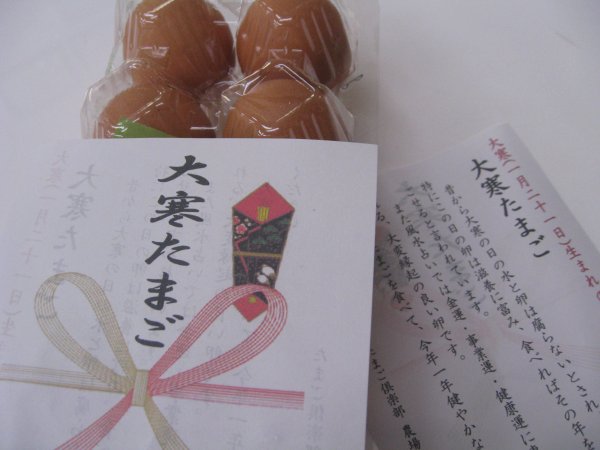 大寒たまご
大寒(一月二十一日)生まれの
大寒たまご
昔から大寒の日の水と卵は腐らないとされ
特にこの日の卵は滋養に富み、食べればその年を
せると言われています。
また風水占いでは金運・事業運・健康運に
大変縁起の良い卵です。
を食べて、今年一年健やかな
たまご倶楽部 農場